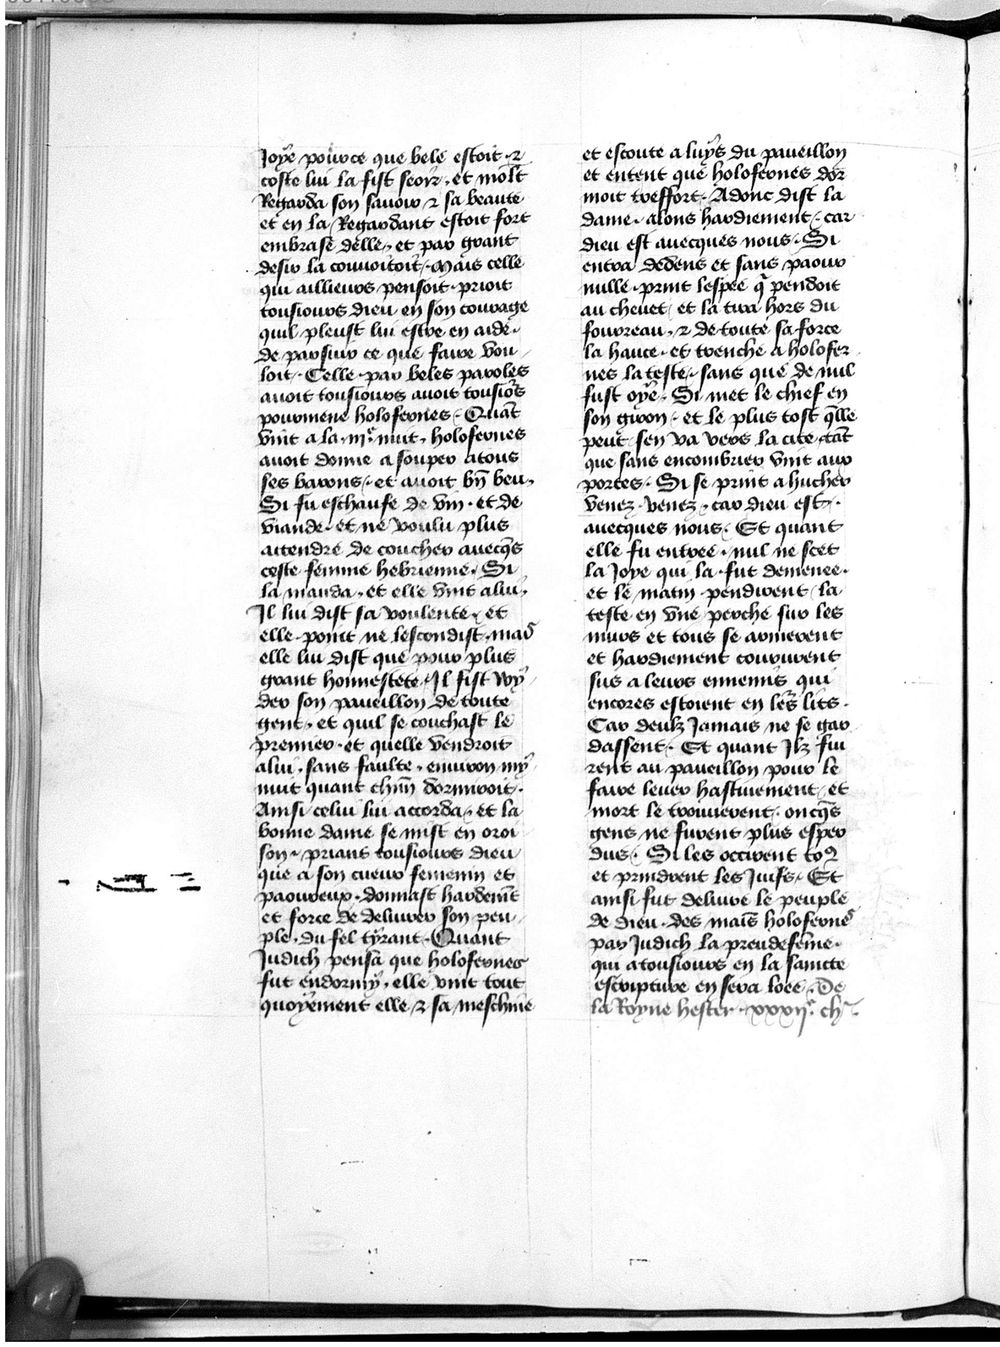 Joye pource que bele estoit · ⁊
coste lui la fist seoir, et molt
Regarda son sauoir ⁊ sa beaute
et en la Regardant estoit fort
embrase delle, et par grant
desir la couuoitoit · Mais celle
qui ailleurs pensoit · prioit
tousiours dieu en son courage
quil pleust lui estre en aide ·
de parsuir ce que faire vou
loit · Celle par beles paroles
auoit tousiours auoit tousiors
pourmene holofernes · Quāt
vint a la · iiie nuit, holofernes
auoit donne a souper a tous
ses barons · et auoit bn̄ beu,
Si fu eschaufe de vin · et de
viande · et ne voulu plus
attendre de coucher auecqs
ceste femme hebrienne · Si
la manda, et elle vint a lui,
Il lui dist sa voulente, et
elle point ne lescondist, mais
elle lui dist que pour plus
grant honnestete · Il fist wy
der son paueillon de toute
gent, et quil se couchast le
premier · et quelle vendroit
a lui, sans faulte, enuiron my
nuit quant chūn dormiroit ·
Ainsi celui lui accorda, et la
bonne dame se mist en oroi
son · priant tousiours dieu
que a son cueur femenin et
paoureux · donnast hardemēt
et force de deliurer son peu
ple · du fel tyrant · Quant
Judich pensa que holofernes
fut endormy, elle vint tout
quoyement elle ⁊ sa meschine
et escoute a luys du paueillon
et entent que holofernes dor
moit treffort · Adonc dist la
dame · alons hardiement · car
dieu est auecques nous · Si
entra dedens et sans paour
nulle · print lespee q̄ pendoit
au cheuet, et la tira hors du
fourreau, ⁊ de toute sa force
la hauce · et trenche a holofer
nes la teste · sans que de nul
fust oye · Si met le chief en
son giron · et le plus tost q̄lle
peut sen va vers la cite, tāt
que sans encombrier vint aux
portes · Si se print a hucher
venez · venez, car dieu est ·
auecques nous · Et quant
elle fu entree · nul ne scet
la Joye qui la · fut demenee ·
et le matin · pendirent la
teste en vne perche sur les
murs et tous se armerent
et hardiement coururent
sus a leurs ennemis qui
encores estoient en le͛s lits ·
Car deulz Jamais ne se gar
dassent · Et quant Ilz fu
rent au paueillon pour le
faire leuer hastiuement, et
mort le trouuerent · oncqs
gens ne furent plus esper
dus · Si les occirent toꝰ
et prindrent les Juifs · Et
ainsi fut deliure le peuple
de dieu · des mais holofernes
par Judich la preudefēme ·
qui a tousiours en la saincte
escripture en sera loee · De
la Royne hester · xxxije · ch̄e ·